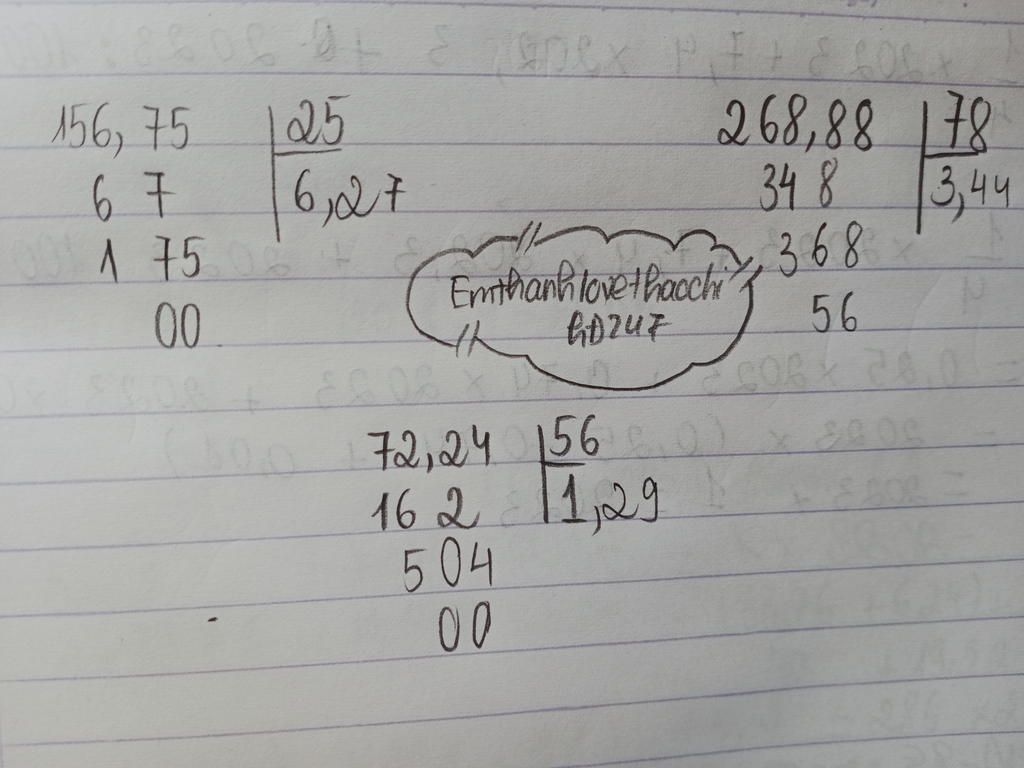 156,75 25
6 7 6,27
1 75
00
268,88 78
34 8 3,44
368
56
Emthanhlovethaochi
hD247
72,24 56
16 2 1,29
5 04
00